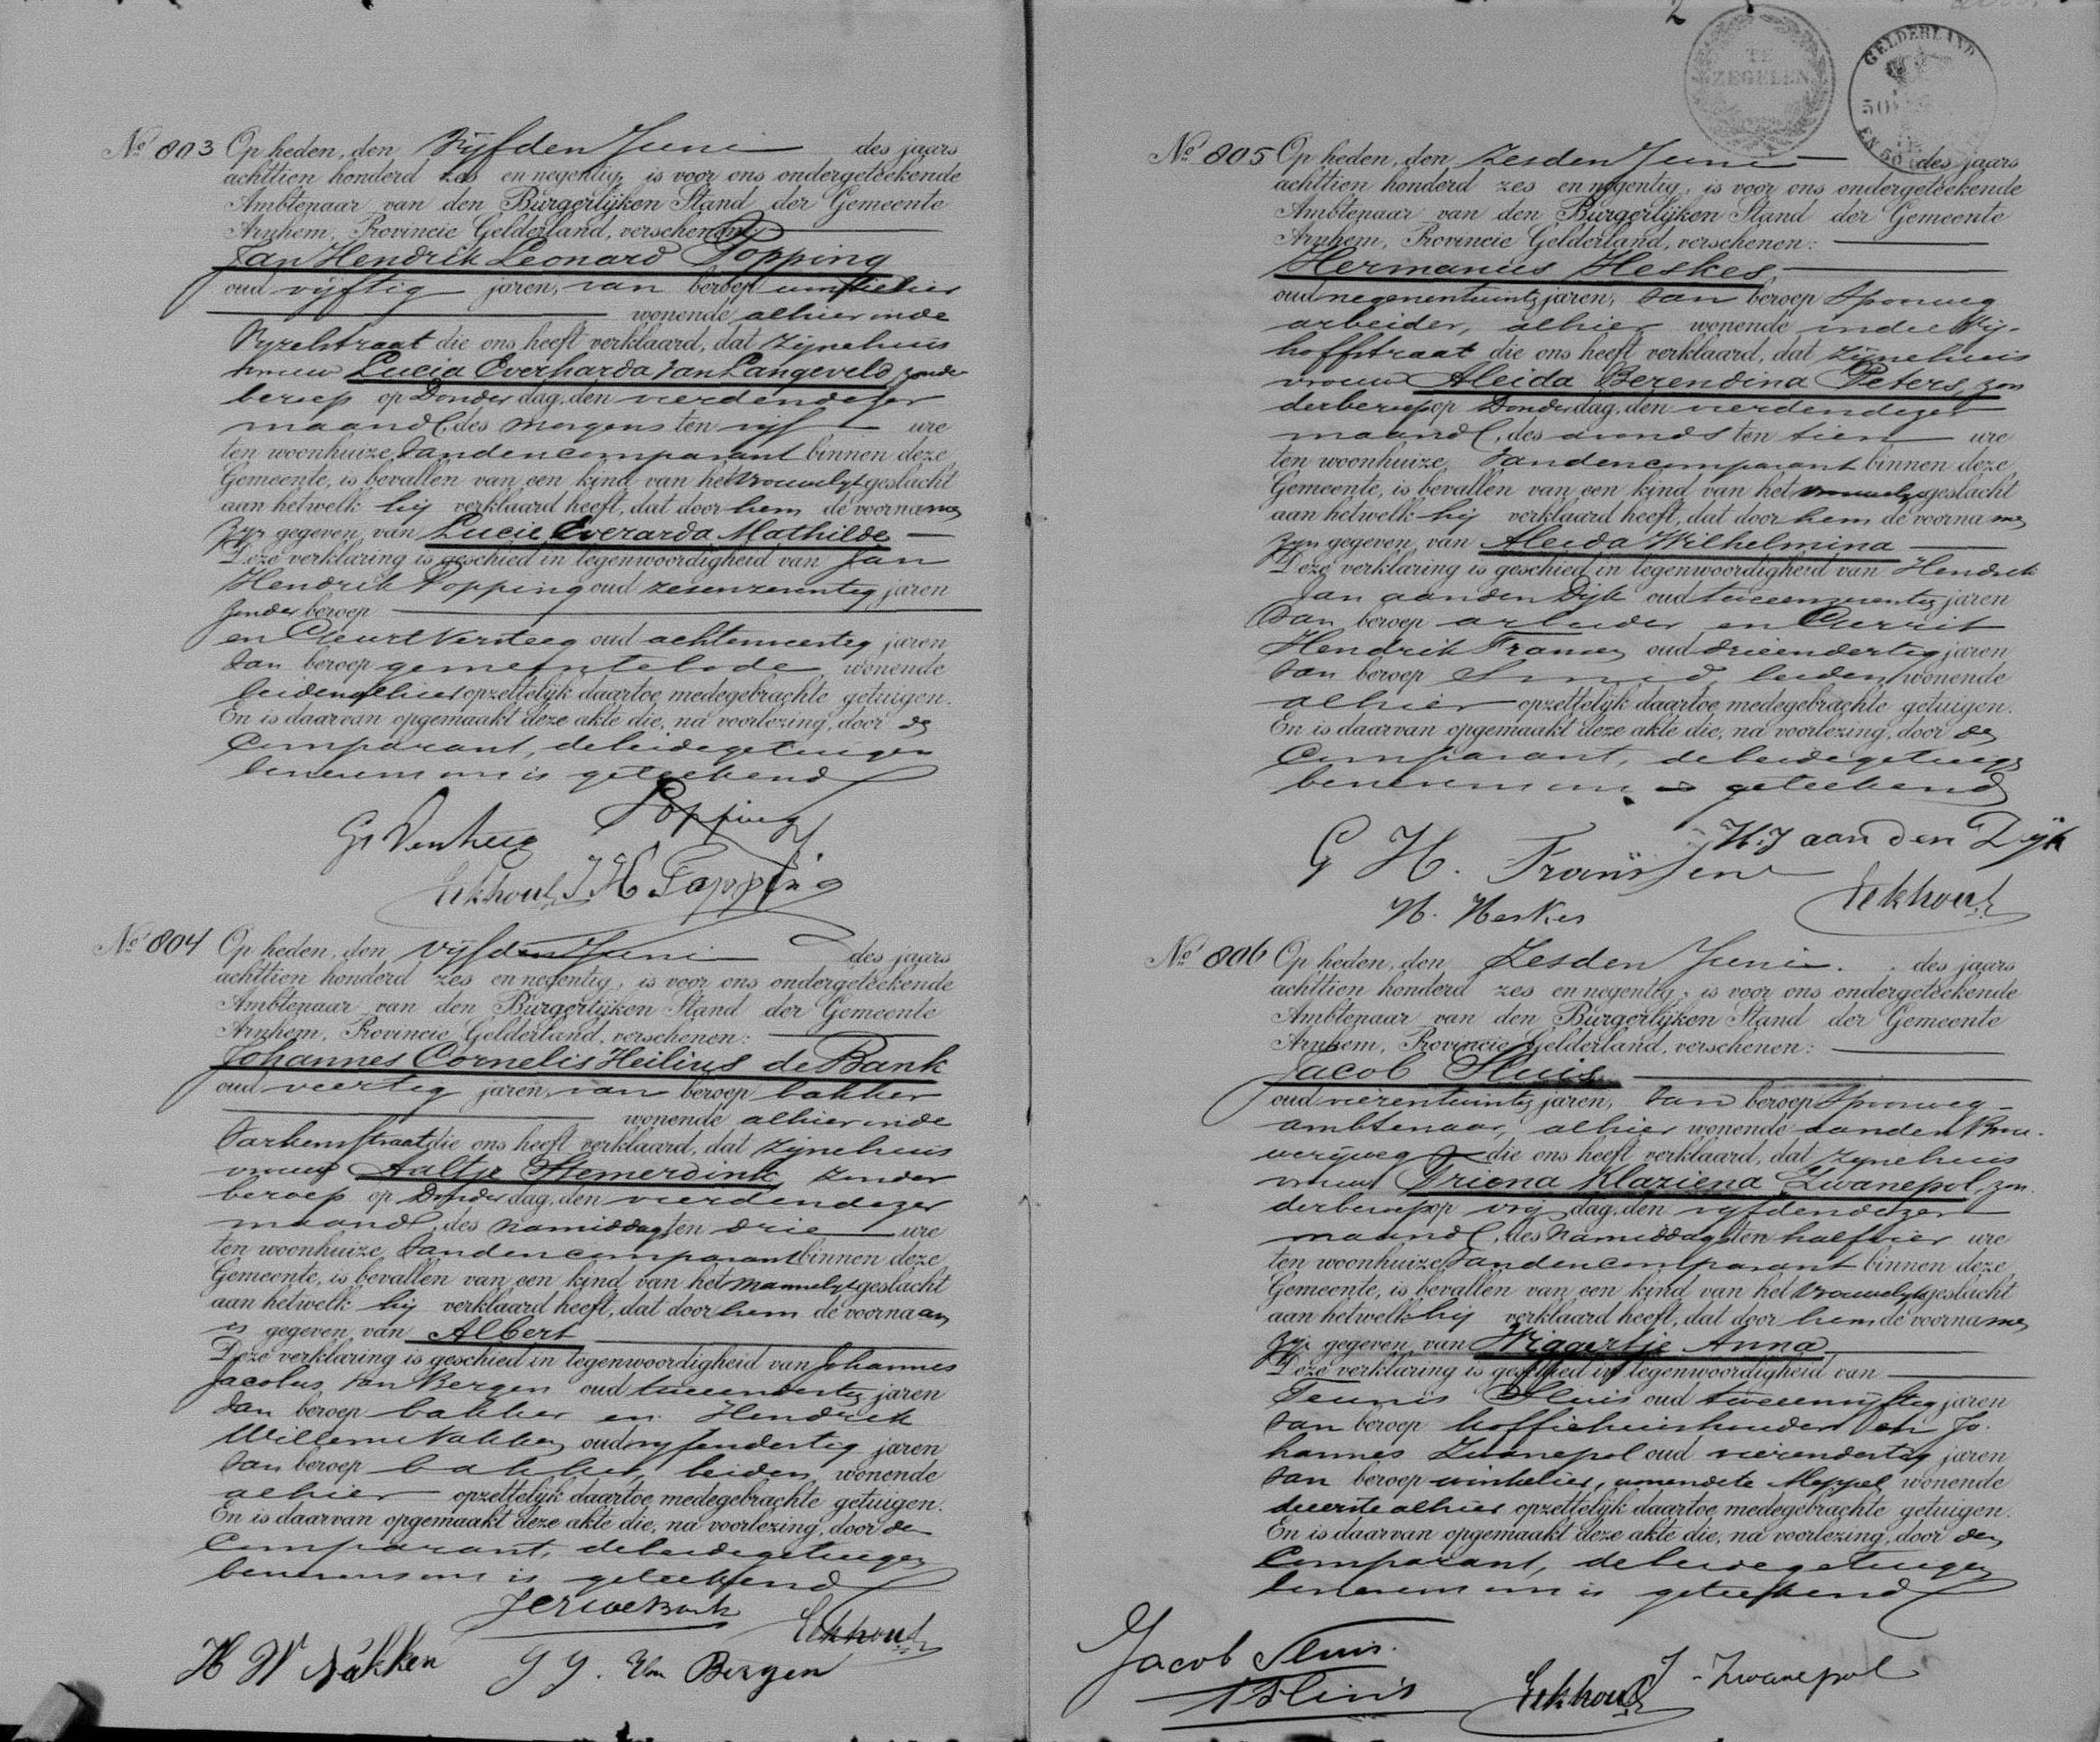 No. 803 Op heden, den Vijfden Juni des jaars
achttien honderd zes en negentig, is voor ons ondergeteekende
Ambtenaar van den Burgerlijken Stand der Gemeente
Arnhem, Provincie Gelderland, verschenen:
Jan Hendrik Leonard Popping
oud vijftig jaren, van beroep winkelier
wonende alhier in de
Nyzelstraat die ons heeft verklaard, dat zijne huis
vrouw Lucia Everharda van Langeveld zonder
beroep op Donderdag, den vierden dezer
maand, des morgens ten vijf ure
ten woonhuize van den comparant binnen deze
Gemeente, is bevallen van een kind van het vrouwelijk geslacht
aan hetwelk hij verklaard heeft, dat door hem de voornamen
zijn gegeven van Lucie Everarda Mathilde
Deze verklaring is geschied in tegenwoordigheid van Jan
Hendrik Popping oud zesenzeventig jaren
zonder beroep
en Geurt Versteeg oud achtenveertig jaren
van beroep gemeentebode wonende
beiden alhier opzettelijk daartoe medegebrachte getuigen.
En is daarvan opgemaakt deze akte die, na voorlezing, door den
Comparant, de beide getuigen
benevens ons is geteekend
Popping
G Versteeg
Eekhout J H Popping
No. 804 Op heden, den Vijfden Juni des jaars
achttien honderd zes en negentig, is voor ons ondergeteekende
Ambtenaar van den Burgerlijken Stand der Gemeente
Arnhem, Provincie Gelderland, verschenen:
Johannes Cornelis Heilius de Bank
oud veertig jaren, van beroep bakker
wonende alhier in de
Varkensstraat die ons heeft verklaard, dat zijne huis
vrouw Aaltje Stemerdink zonder
beroep op Donderdag, den vierden dezer
maand, des namiddags ten drie ure
ten woonhuize van den comparant binnen deze
Gemeente, is bevallen van een kind van het mannelijk geslacht
aan hetwelk hij verklaard heeft, dat door hem de voornaam
is gegeven van Albert
Deze verklaring is geschied in tegenwoordigheid van Johannes
Jacobus van Bergen oud tweeendertig jaren
van beroep bakker en Hendrik
Willem Nakken oud vijfendertig jaren
van beroep bakker, beiden wonende
alhier opzettelijk daartoe medegebrachte getuigen.
En is daarvan opgemaakt deze akte die, na voorlezing, door den
Comparant, de beide getuigen
benevens ons is geteekend
Eekhout
H W Nakken J J. van Bergen
No. 805 Op heden, den Zesden Juni des jaars
achttien honderd zes en negentig, is voor ons ondergeteekende
Ambtenaar van den Burgerlijken Stand der Gemeente
Arnhem, Provincie Gelderland, verschenen:
Hermanus Heskes
oud negenentwintig jaren, van beroep Spoorweg
arbeider, alhier wonende in de
hoffstraat die ons heeft verklaard, dat zijne huis
vrouw Aleida Berendina Peters, zon
der beroep op Donderdag, den vierden dezer
maand, des avonds ten tien ure
ten woonhuize van den comparant binnen deze
Gemeente, is bevallen van een kind van het vrouwelijk geslacht
aan hetwelk hij verklaard heeft, dat door hem de voornamen
zijn gegeven van Aleida Wilhelmina
Deze verklaring is geschied in tegenwoordigheid van Hendrik
Jan aan den Dijk oud tweeenzeventig jaren
van beroep arbeider en Gerrit
Hendrik Franssen oud drieendertig jaren
van beroep Smid, beiden wonende
alhier opzettelijk daartoe medegebrachte getuigen.
En is daarvan opgemaakt deze akte die, na voorlezing, door den
Comparant, de beide getuigen
benevens ons is geteekend
H.J aan den Dijk
G H. Franssen
H. Heskes Eekhout
No. 806 Op heden, den Zesden Juni des jaars
achttien honderd zes en negentig, is voor ons ondergeteekende
Ambtenaar van den Burgerlijken Stand der Gemeente
Arnhem, Provincie Gelderland, verschenen:
Jacob Sluis
oud vierentwintig jaren, van beroep Spoorweg-
ambtenaar, alhier wonende aan den Brou-
werijweg die ons heeft verklaard, dat zijne huis
vrouw Triena Klaziena Zwanepol, zon
der beroep op vrijdag, den vijfden dezer
maand, des namiddags ten half vier ure
ten woonhuize van den comparant binnen deze
Gemeente, is bevallen van een kind van het vrouwelijk geslacht
aan hetwelk hij verklaard heeft, dat door hem de voornamen
zijn gegeven van Wiggertje Anna
Deze verklaring is geschied in tegenwoordigheid van
Teunis Sluis oud tweeenvijftig jaren
van beroep koffiehuishouder en Jo-
hannes Zwanepol oud vierendertig jaren
van beroep winkelier, wonende te Meppel wonende
de eerste alhier opzettelijk daartoe medegebrachte getuigen.
En is daarvan opgemaakt deze akte die, na voorlezing, door den
Comparant, de beide getuigen
benevens ons is geteekend
Jacob Sluis.
T Sluis Eekhout J. Zwanepol
TE ZEGELEN
GELDERLAND